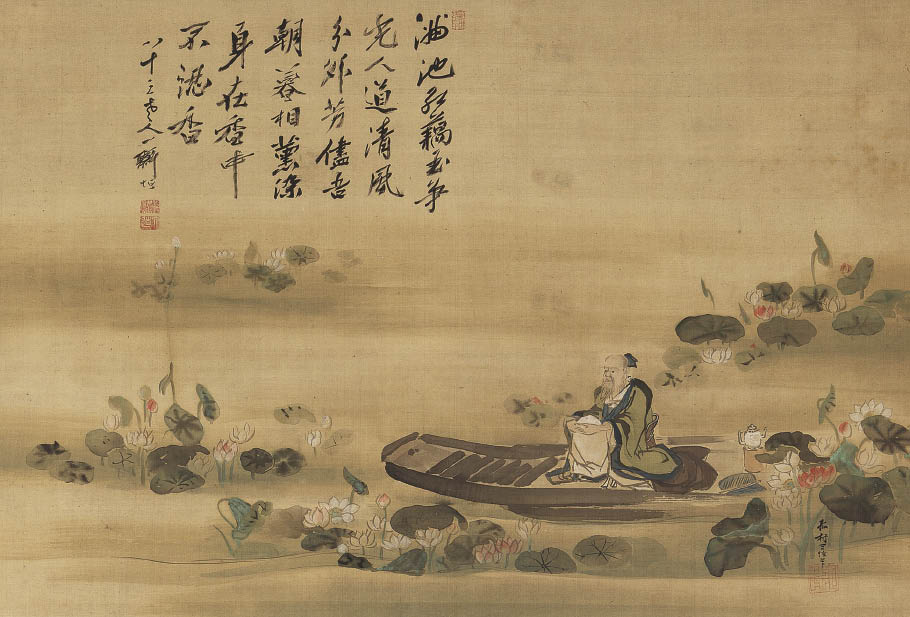 滿池紅藕玉爭
光人道清風
分外芳儘吾
朝暮相薰染
身在香中
不香
八十三老人一齋坦
村